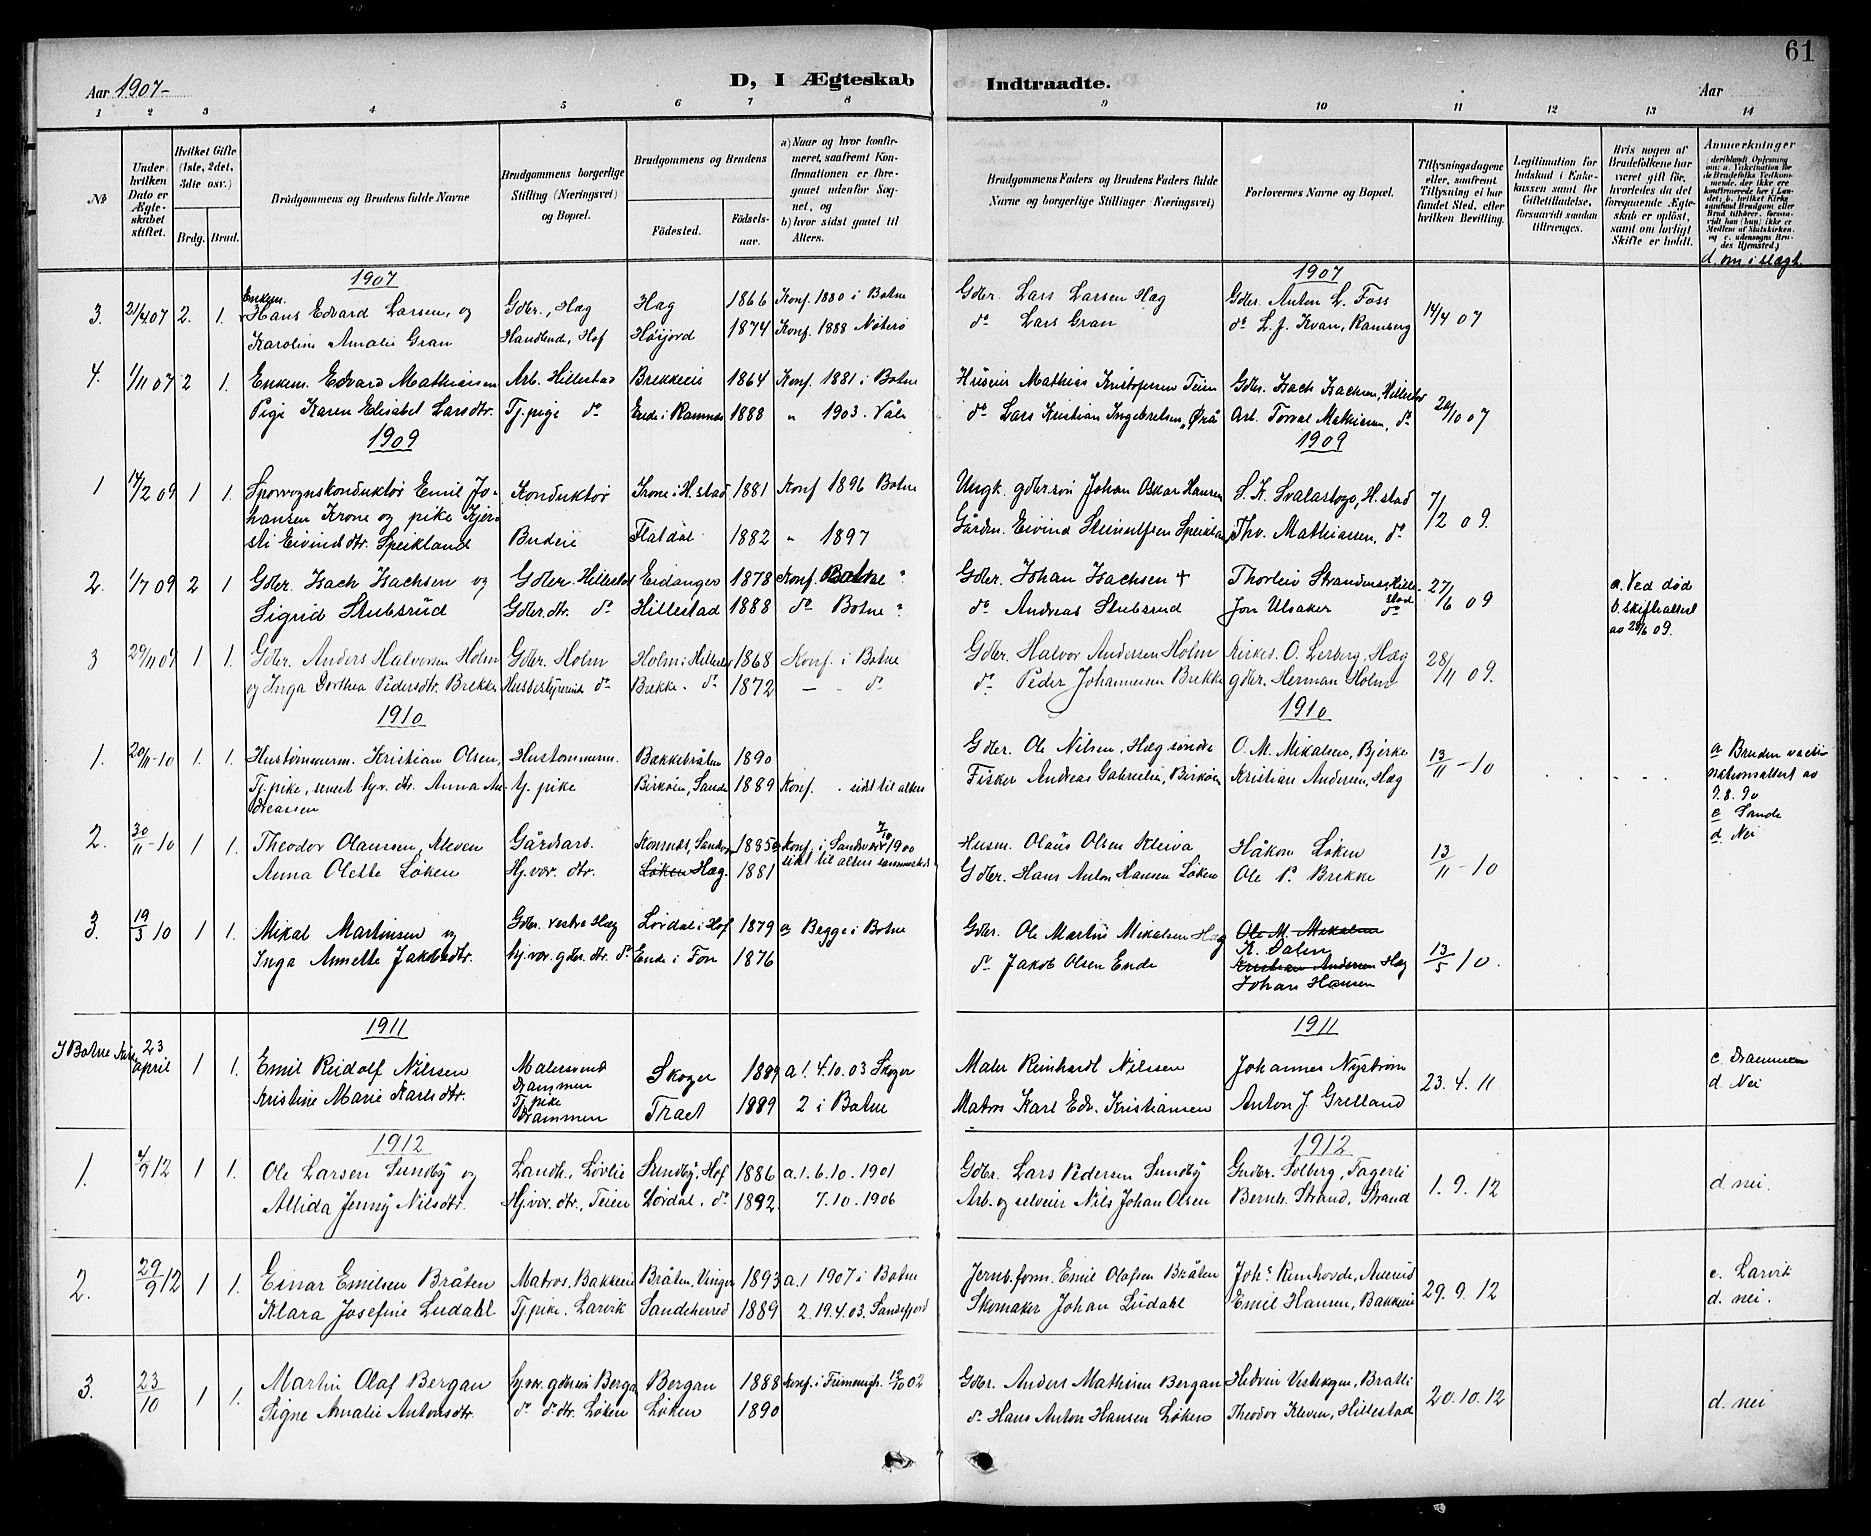 61
Aar 1907-
D, I Ægteskab Indtraadte.
Aar
1 2 3 4 5 6 7 8 9 10 11 12 13 14
No
Under hvilken Dato er Ægteskabet stiftet.
Hvilket Gifte (1ste, 2det, 3die osv.)
Brdg. Brud.
Brudgommens og Brudens fulde Navne
Brudgommens borgerlige Stilling (Næringsvei) og Bopæl.
Brudgommens og Brudens
Fødested. Fødselsaar.
a) Naar og hvor konfirmeret, saafremt Konfirmationen er foregaaet udenfor Sognet, og
b) hvor sidst gaaet til Alters.
Brudgommens Faders og Brudens Faders fulde Navne og borgerlige Stillinger (Næringsvei)
Forlovernes Navne og Bopæl.
Tillysningsdagene eller, saafremt Tillysning ei har fundet Sted, efter hvilken Bevilling.
Legitimation for Indskud i Enkekassen samt for Giftetilladelse, forsaavidt saadan tiltrænges.
Hvis nogen af Brudefolkene har været gift før, hvorledes da det foregaaende Ægteskab er opløst, samt om lovligt Skifte er holdt.
Anmerkninger
d. om i slægt
1907 1907
3. 21/4 07 2. 1. Enkem. Hans Edvard Larsen, og Gdbr., Hæg Hæg 1866 Konf. 1880 i Botne Gdbr. Lars Larsen Hæg Gdbr. Anton L. Foss 14/4 07
Karoline Amalie Gran Handlende, Hof Høijord 1874 Konf. 1888 Nøterø do Lars Gran do L. J. Kvan, Ramberg
4. 1/11 07 2 1. Enkem. Edvard Mathiesen Arb. Hillestad Brekkeeie 1864 Konf. 1881 i Botne Huseier Mathias Kristofersen Teien Gdbr. Isach Isachsen, Hillestad 20/10 07
Pige Karen Elisabet Larsdtr. Tj.pige do Ende i Ramnes 1888 " 1903. Våle do Lars Kristian Ingebretsen, Arb. Torval Mathisen, do
1909 1909
1 14/2 09 1 1. Sporvognskonduktør Emil Jo- Konduktør Krone i H.stad 1881 Konf 1896 Botne Ungk. gdbrsøn Johan Oskar Hansen S. K. Svalastoga, H.stad 7/2 09.
hansen Krone og pike Kjer-
sti Eivindsdtr. Speikland Budeie Flatdal 1882 " 1897 Gårdm. Eivind Steinulfsen Speikland Thv. Mathiassen, do
2. 1/7 09 2 1 Gdbr. Isach Isachsen og Gdbr. Hillestad Eidanger 1878 Konf. Botne Gdbr. Johan Isachsen + Thorleiv Strandenæs, Hillestad 27/6 09 a. Ved død
Sigrid Stubsrud Gdbr.dtr. do Hillestad 1888 do Botne do Andreas Stubsrud Jon Ulsaker do b. skifteattest
av 28/6 09.
3 29/11 09 1. 1. Gdbr. Anders Halvorsen Holm Gdbr. Holm Holm i Hillestad 1868 Konf. i Botne Gdbr. Halvor Andersen Holm kirkes. O. Lerberg, Hæg 28/11 09.
og Inga Dorthea Pedersdtr. Brekke Husbestyrerinde do Brekke do 1872 – – do do Peder Johannesen Brekke gdbr. Herman Holm
1910 1910
1. 20/11-10 1. 1. Hustømmerm. Kristian Olsen, Hustømmerm. Bakkebråten 1890 Gdbr. Ole Nilsen, Hæg søndre O. M. Mikalsen, Bjerke 13/11-10 a Bruden vacci-
Tj.pike, senest hjv. dtr. Anna An- tj. pike Birkøien, Sande 1889 Konf. - sidst til alters Fisker Andreas Gabrielsen, Birkøien Kristian Andersen, Hæg nationsattest av
dreassen 9.8.90
c Sande
d Nei
2. 30/11-10 1 1. Theodor Olaussen, Kleven Gårdsarb. 1885 Konf. i Sandsvær 1900 Husm. Olaus Olsen Kleiva Håkon Løken 13/11-10
Anna Olette Løken Hj.vær. dtr. Løken Hæg. 1881 sidst til alters sammesteds Gdbr. Hans Anton Hansen Løken Ole P. Brekke
3. 19/5 10 1 1. Mikal Martinsen og Gdbr. vestre Hæg Lørdal i Hof 1879 a Begge i Botne Gdbr. Ole Martin Mikalsen Hæg Ole M. Mikalsen 13/5 10.
K. Dalen
Inga Annette Jakobsdtr. hj.vær. gdbr. dtr. do Ende i Fon 1876 do Jakob Olsen Ende Kristian Andersen Hæg
Johan Hansen
1911 1911
I Botne Kirke 23 april 1 1. Emil Rudolf Nilssen Malersvend Drammen Skoger 1889 a 1. 4.10.03 Skoger Maler Reinhardt Nilssen Johannes Nystrøm 23.4.11 c. Drammen
Kristine Marie Karlsdtr. Tj.pike Drammen Traet 1889 2 i Botne Matros Karl Edv. Kristiansen Anton J. Grelland d. Nei
1912 1912
1. 4/9 12 1 1. Ole Larsen Sundby og Landh., Løvlie Sundby, Hof 1886 a. 1. 6.10.1901 Gdbr. Lars Pedersen Sundby Gudbr. Solberg, Fagerli 1.9.12 d. nei.
Alfida Jenny Nilsdtr. Hj.vær. dtr., Teien Lørdal, do 1892. 7.10.1906 Arb. og selveier Nils Johan Olsen Bernh. Strand, Strand
2. 29/9 12 1 1. Einar Emilsen Bråten Matros, Bakkeeie Bråten, Vinger 1893 a. 1 1907 i Botne Jernb.form. Emil Olafsen Bråten Johs Rimhovde, 29.9.12 c. Larvik
Klara Josefine Ludahl Tj.pike. Larvik Sandeherred 1889 2. 19.4.03. Sandefjord Skomaker Johan Ludahl Emil Hansen, Bakkeeie d. nei.
3. 23/10 1 1. Martin Olaf Bergan hj.vær. gdbr.søn Bergan Bergan 1888 Konf. i Frimenigh. 02 Gdbr. Anders Mathisen Bergan Hedvin Vestskogen, Bratli 20.10.12 d. nei
Signe Amalie Antonsdtr. do do dtr. Løken Løken 1890 do Hans Anton Hansen Løken Theodor Kleven, Hillestad